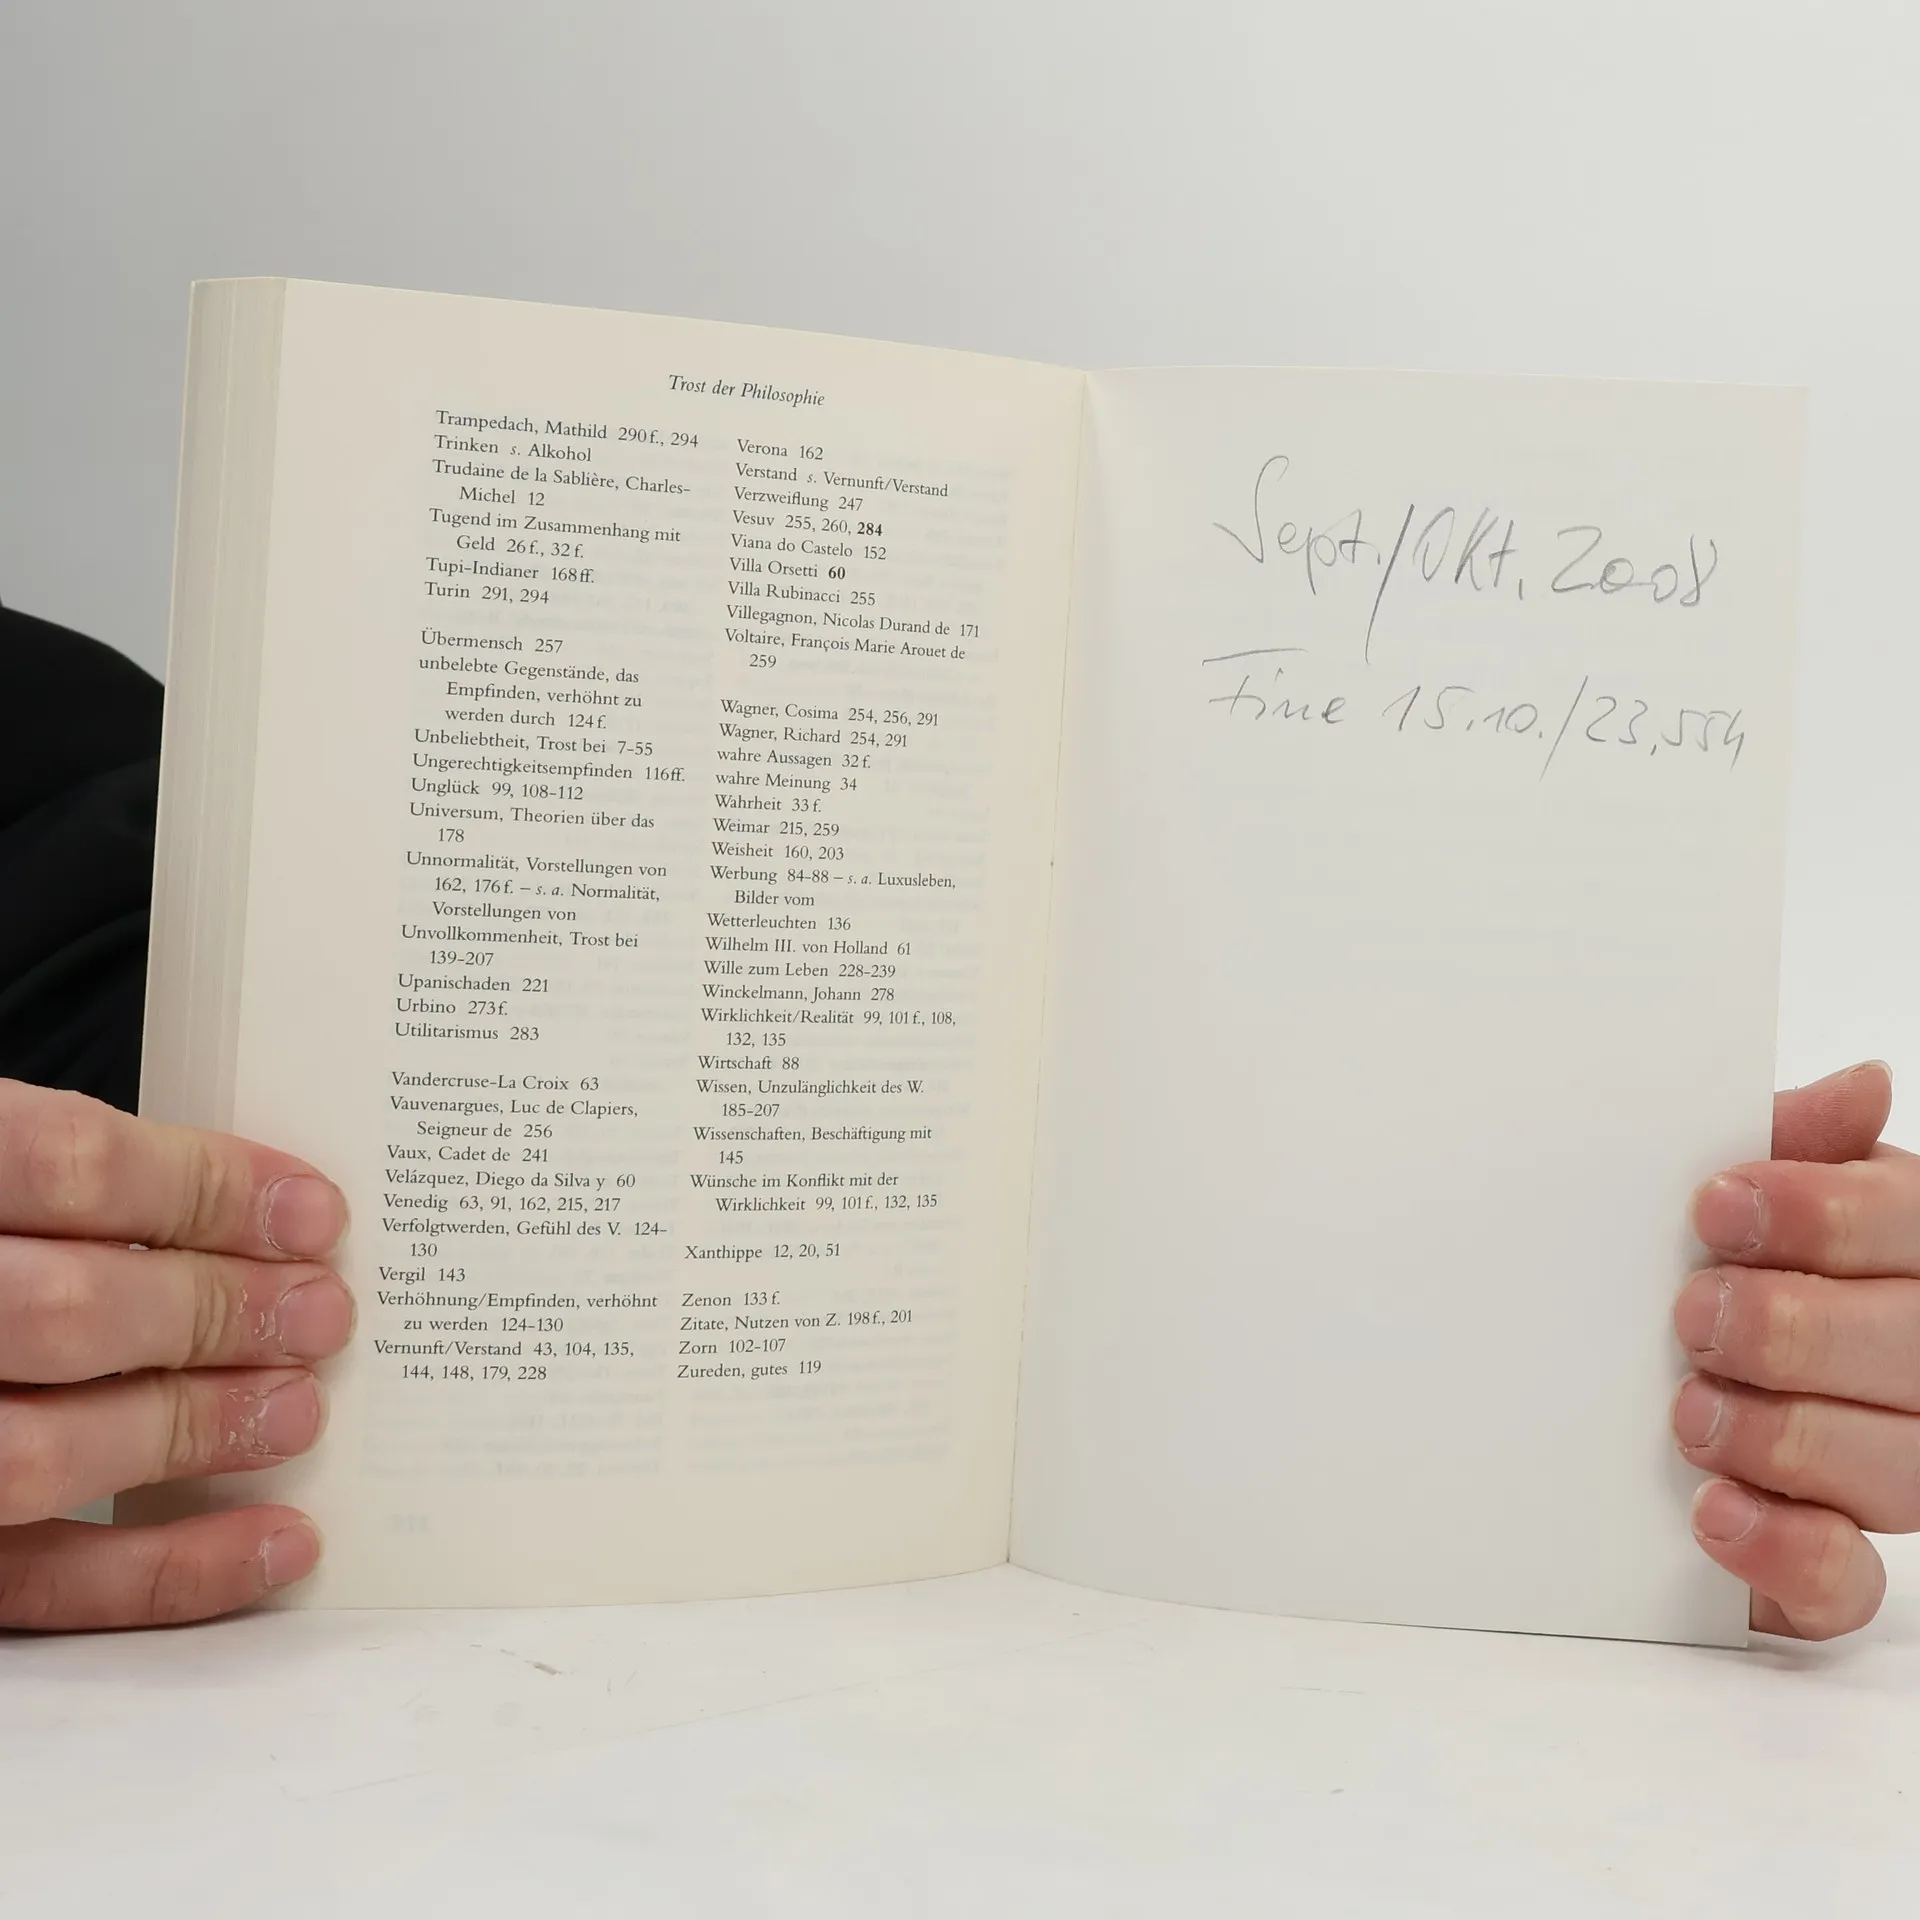 Trost der Philosophie
Trampedach, Mathild 290 f., 294
Trinken s. Alkohol
Trudaine de la Sablière, Charles-
Michel 12
Tugend im Zusammenhang mit
Geld 26 f., 32 f.
Tupi-Indianer 168 ff.
Turin 291, 294
Übermensch 257
unbelebte Gegenstände, das
Empfinden, verhöhnt zu
werden durch 124 f.
Unbeliebtheit, Trost bei 7–55
Ungerechtigkeitsempfinden 116 ff.
Unglück 99, 108–112
Universum, Theorien über das
178
Unnormalität, Vorstellungen von
162, 176 f. – s. a. Normalität,
Vorstellungen von
Unvollkommenheit, Trost bei
139–207
Upanischaden 221
Urbino 273 f.
Utilitarismus 283
Vandercruse-La Croix 63
Vauvenargues, Luc de Clapiers,
Seigneur de 256
Vaux, Cadet de 241
Velázquez, Diego da Silva y 60
Venedig 63, 91, 162, 215, 217
Verfolgtwerden, Gefühl des V. 124–
130
Vergil 143
Verhöhnung/Empfinden, verhöhnt
zu werden 124–130
Vernunft/Verstand 43, 104, 135,
144, 148, 179, 228
Verona 162
Verstand s. Vernunft/Verstand
Verzweiflung 247
Vesuv 255, 260, 284
Viana do Castelo 152
Villa Orsetti 60
Villa Rubinacci 255
Villegagnon, Nicolas Durand de 171
Voltaire, François Marie Arouet de
259
Wagner, Cosima 254, 256, 291
Wagner, Richard 254, 291
wahre Aussagen 32 f.
wahre Meinung 34
Wahrheit 33 f.
Weimar 215, 259
Weisheit 160, 203
Werbung 84–88 – s. a. Luxusleben,
Bilder vom
Wetterleuchten 136
Wilhelm III. von Holland 61
Wille zum Leben 228–239
Winckelmann, Johann 278
Wirklichkeit/Realität 99, 101 f., 108,
132, 135
Wirtschaft 88
Wissen, Unzulänglichkeit des W.
185–207
Wissenschaften, Beschäftigung mit
145
Wünsche im Konflikt mit der
Wirklichkeit 99, 101 f., 132, 135
Xanthippe 12, 20, 51
Zenon 133 f.
Zitate, Nutzen von Z. 198 f., 201
Zorn 102–107
Zureden, gutes 119
Sept./Okt. 2008
Fine 15.10./23,554